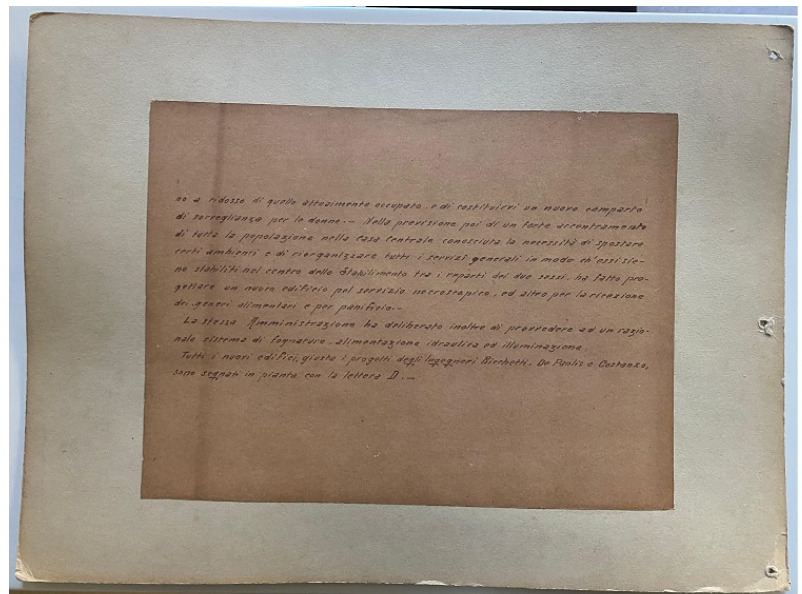 no a ridosso di quello attualmente occupato, e di costituirvi un nuovo comparto
di sorveglianza per le donne.— Nella previsione poi di un forte accentramento
di tutta la popolazione nella Casa Centrale conosciuta la necessità di spostare
certi ambienti e di riorganizzare tutti i servizi generali in modo ch'essi sie-
no stabiliti nel centro dello Stabilimento tra i reparti dei due sessi, ha fatto pro-
gettare un nuovo edificio pel servizio necroscopico, ed altro per la ricezione
dei generi alimentari e per panificio.—
La stessa Amministrazione ha deliberato inoltre di provvedere ad un razio-
nale sistema di fognatura, alimentazione idraulica ed illuminazione.
Tutti i nuovi edifici, giusta i progetti degli Ingegneri Ricchetti, De Paolis e Costanzo,
sono segnati in pianta con la lettera D.—